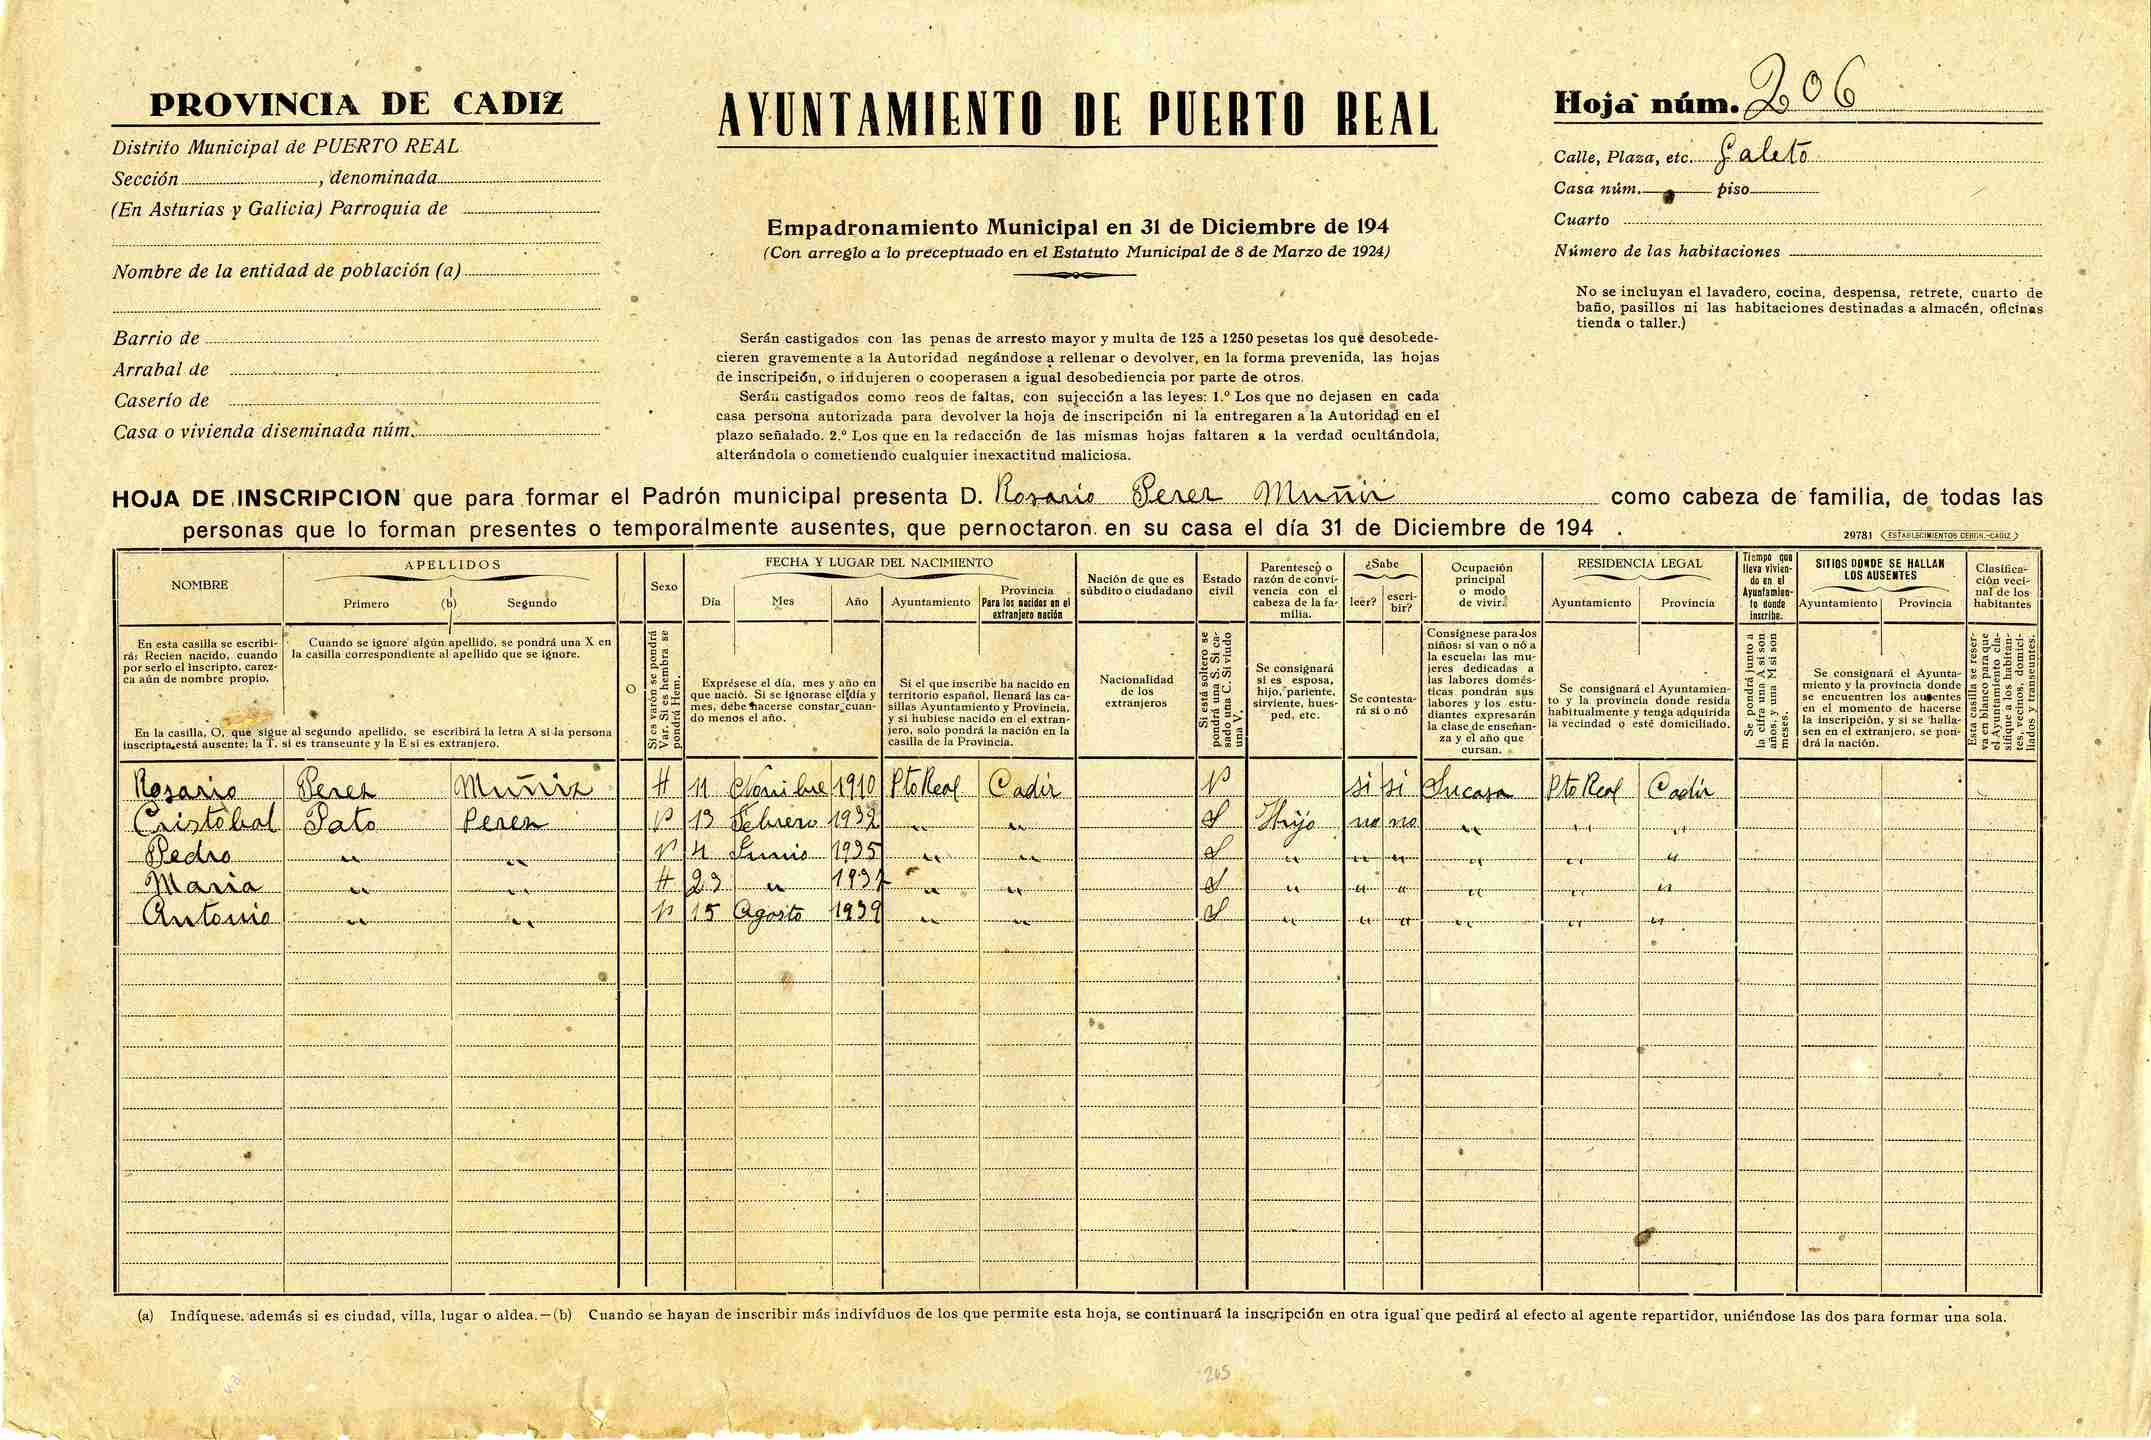 PROVINCIA DE CADIZ
Distrito Municipal de PUERTO REAL
Sección , denominada
(En Asturias y Galicia) Parroquia de
Nombre de la entidad de población (a)
Barrio de
Arrabal de
Caserío de
Casa o vivienda diseminada núm.
AYUNTAMIENTO DE PUERTO REAL
Empadronamiento Municipal en 31 de Diciembre de 194
(Con arreglo a lo preceptuado en el Estatuto Municipal de 8 de Marzo de 1924)
Serán castigados con las penas de arresto mayor y multa de 125 a 1250 pesetas los que desobede-
cieren gravemente a la Autoridad negándose a rellenar o devolver, en la forma prevenida, las hojas
de inscripción, o indujeren o cooperasen a igual desobediencia por parte de otros.
Serán castigados como reos de faltas, con sujección a las leyes: 1.º Los que no dejasen en cada
casa persona autorizada para devolver la hoja de inscripción ni la entregaren a la Autoridad en el
plazo señalado. 2.º Los que en la redacción de las mismas hojas faltaren a la verdad ocultándola,
alterándola o cometiendo cualquier inexactitud maliciosa.
Hoja núm. 206
Calle, Plaza, etc. Galeto
Casa núm. piso
Cuarto
Número de las habitaciones
No se incluyan el lavadero, cocina, despensa, retrete, cuarto de
baño, pasillos ni las habitaciones destinadas a almacén, oficinas
tienda o taller.)
HOJA DE INSCRIPCION que para formar el Padrón municipal presenta D. Rosario Perez Muñiz como cabeza de familia, de todas las
personas que lo forman presentes o temporalmente ausentes, que pernoctaron en su casa el día 31 de Diciembre de 194 .
29781 ESTABLECIMIENTOS CERON.-CADIZ
NOMBRE
APELLIDOS
Primero (b) Segundo
O
Sexo
FECHA Y LUGAR DEL NACIMIENTO
Día Mes Año Ayuntamiento
Provincia
Para los nacidos en el
extranjero nación
Nación de que es
súbdito o ciudadano
Estado
civil
Parentesco o
razón de convi-
vencia con el
cabeza de la fa-
milia.
¿Sabe
leer? escri-
bir?
Ocupación
principal
o modo
de vivir.
RESIDENCIA LEGAL
Ayuntamiento Provincia
Tiempo que
lleva vivien-
do en el
Ayuntamien-
to donde
inscribe.
SITIOS DONDE SE HALLAN
LOS AUSENTES
Ayuntamiento Provincia
Clasifica-
ción veci-
nal de los
habitantes
En esta casilla se escribi-
rá: Recien nacido, cuando
por serlo el inscripto, carez-
ca aún de nombre propio.
Cuando se ignore algún apellido, se pondrá una X en
la casilla correspondiente al apellido que se ignore.
En la casilla, O, que sigue al segundo apellido, se escribirá la letra A si la persona
inscripta está ausente: la T. si es transeunte y la E si es extranjero.
Si es varón se pondrá
Var. Si es hembra se
pondrá Hem.
Exprésese el día, mes y año en
que nació. Si se ignorase el día y
mes, debe hacerse constar cuan-
do menos el año.
Si el que inscribe ha nacido en
territorio español, llenará las ca-
sillas Ayuntamiento y Provincia,
y si hubiese nacido en el extran-
jero, solo pondrá la nación en la
casilla de la Provincia.
Nacionalidad
de los
extranjeros
Si está soltero se
pondrá una S. Si ca-
sado una C. Si viudo
una V.
Se consignará
si es esposa,
hijo, pariente,
sirviente, hues-
ped, etc.
Se contesta-
rá si o nó
Consígnese para los
niños: si van o nó a
la escuela: las mu-
jeres dedicadas a
las labores domés-
ticas pondrán sus
labores y los estu-
diantes expresarán
la clase de enseñan-
za y el año que
cursan.
Se consignará el Ayuntamien-
to y la provincia donde resida
habitualmente y tenga adquirida
la vecindad o esté domiciliado.
Se pondrá junto a
la cifra una A si son
años, y una M si son
meses.
Se consignará el Ayunta-
miento y la provincia donde
se encuentren los ausentes
en el momento de hacerse
la inscripción, y si se halla-
sen en el extranjero, se pon-
drá la nación.
Esta casilla se reser-
va en blanco para que
el Ayuntamiento cla-
sifique a los habitan-
tes, vecinos, domici-
liados y transeuntes.
Rosario Perez Muñiz H 11 Novibre 1910 Pto Real Cadiz V si si Sucasa Pto Real Cadiz
Cristobal Pato Perez V 13 Febrero 1932 " " S Hijo no no " " "
Pedro " " V 4 Junio 1935 " " S " " " " " "
Maria " " H 23 " 1937 " " S " " " " " "
Antonio " " V 15 Agosto 1939 " " S " " " " " "
(a) Indíquese además si es ciudad, villa, lugar o aldea.—(b) Cuando se hayan de inscribir más individuos de los que permite esta hoja, se continuará la inscripción en otra igual que pedirá al efecto al agente repartidor, uniéndose las dos para formar una sola.
265